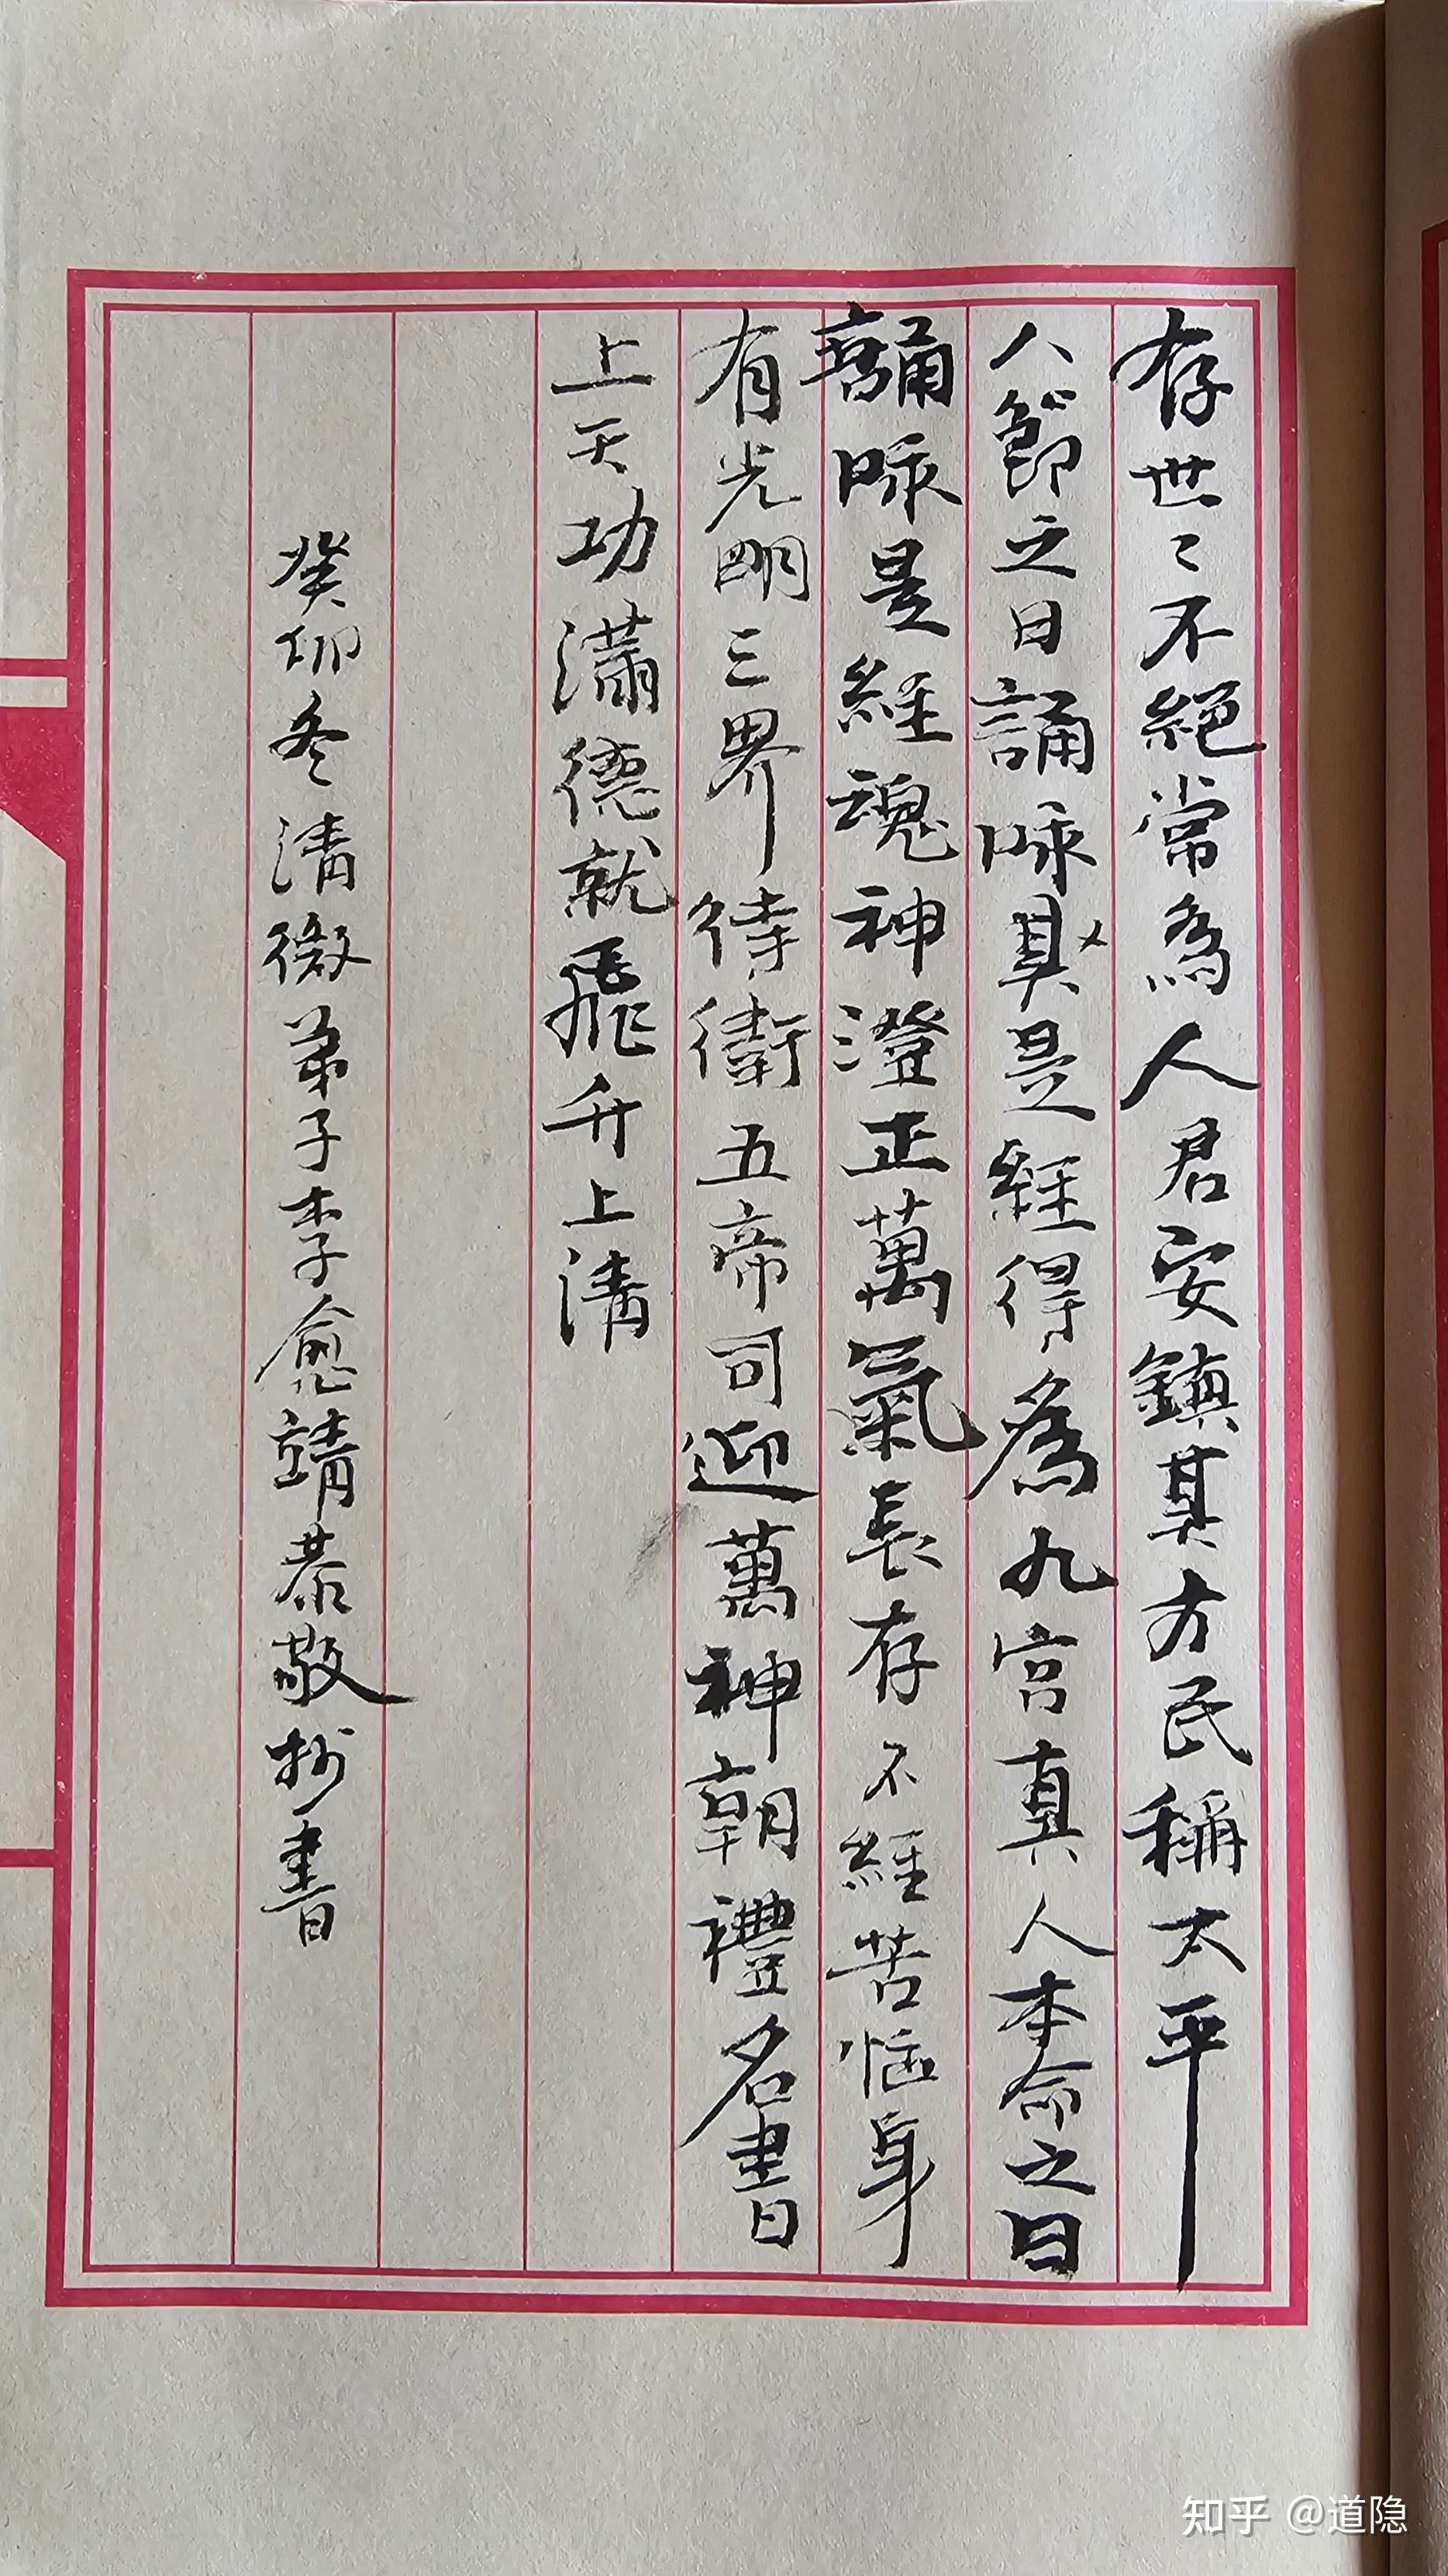 存世〻不絕常為人君安鎮其方民稱太平
八節之日誦咏是經得為九宮真人本命之日
誦咏是經魂神澄正萬氣長存不經苦惱身
有光明三界侍衛五帝司迎萬神朝禮名書
上天功滿德就飛升上清
癸卯冬清微弟子李愈靖恭敬抄書
知乎 @道隐